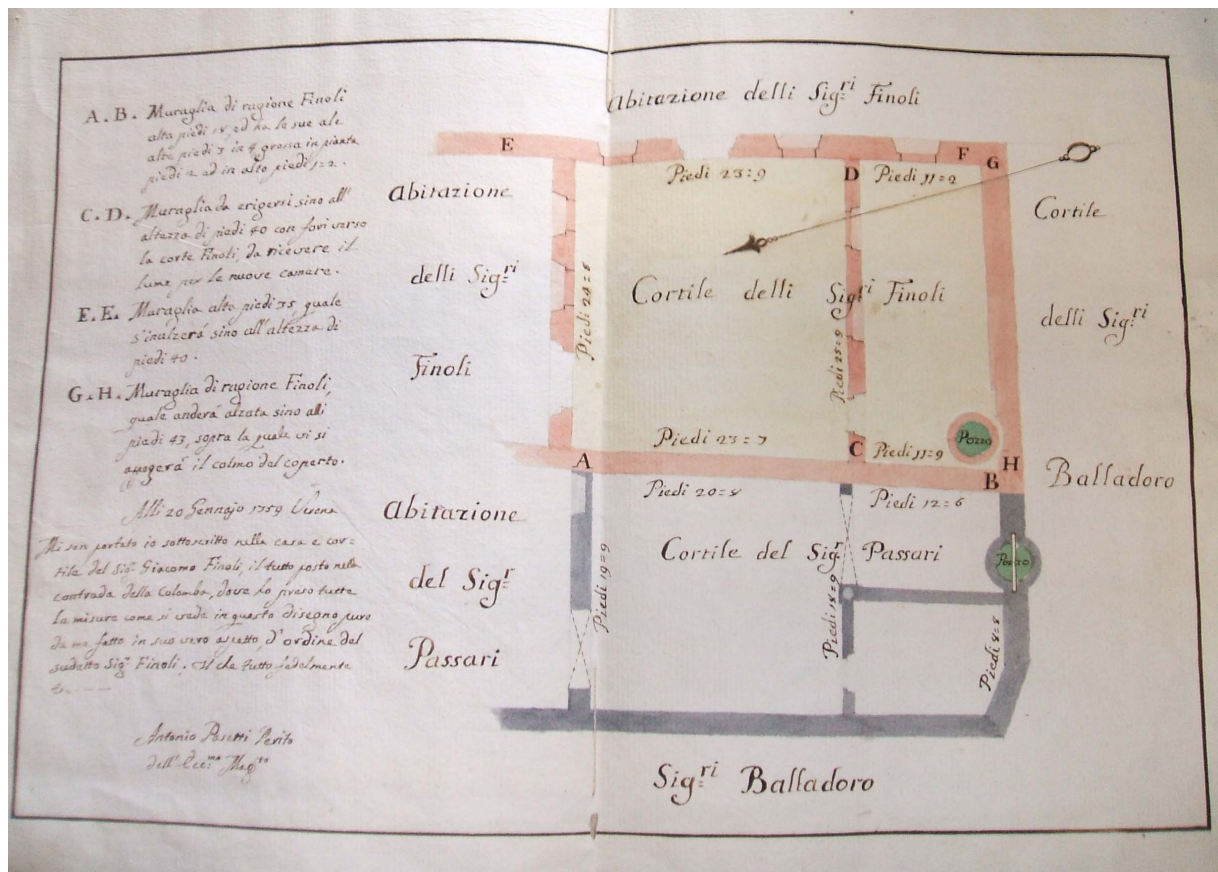 A. B. Muraglia di ragione Finoli
alta piedi 18, ed ha le sue ale
alte piedi 3 in 4 grossa in pianta
piedi 2 ad in alto piedi 1=2.
C. D. Muraglia da erigersi sino all'
altezza di piedi 40 con fori verso
la corte Finoli, da ricevere il
lume per le nuove camere.
E. E. Muraglia alta piedi 35 quale
s'inalzerá sino all'altezza di
piedi 40.
G. H. Muraglia di ragione Finoli,
quale anderá alzata sino alli
piedi 43, sopra la quale vi si
apogerá il colmo del coperto.
Alli 20 Gennajo 1759 Verona
Mi son portato io sottoscritto nella casa e cor=
tile del Sig.r Giacomo Finoli, il tutto posto nella
contrada della Colomba, dove ho preso tutte
le misure come si vede in questo disegno puro
da me fatto in suo vero aspetto, d'ordine del
sudetto Sig.r Finoli. Il che tutto fedelmente
Antonio Perito
dell'Ecc.mo Mag.to
Abitazione delli Sig.ri Finoli
E
F
G
Piedi 23=9
D
Piedi 11=2
Abitazione
delli Sig.ri
Finoli
Piedi 24=6
Cortile delli Sig.ri Finoli
Piedi 25=9
Cortile
delli Sig.ri
Balladoro
Piedi 23=7
C
Piedi 11=9
Pozzo
A
H
B
Piedi 20=8
Piedi 12=6
Abitazione
del Sig.r
Passari
Piedi 19=9
Cortile del Sig.r Passari
Pozzo
Piedi 18=9
Piedi 8=8
Sig.ri Balladoro